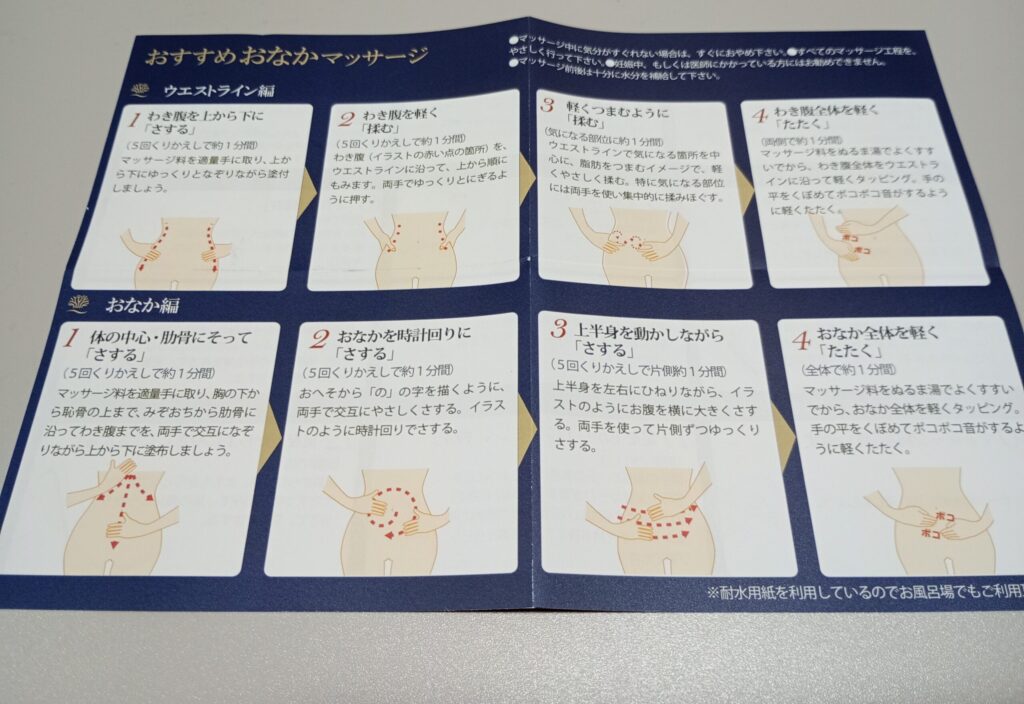 おすすめおなかマッサージ
●マッサージ中に気分がすぐれない場合は、すぐにおやめ下さい。●すべてのマッサージ工程を、
やさしく行って下さい。●妊娠中、もしくは医師にかかっている方にはお勧めできません。
●マッサージ前後は十分に水分を補給して下さい。
ウエストライン編
1 わき腹を上から下に
「さする」
(5回くりかえしで約1分間)
マッサージ料を適量手に取り、上から
下にゆっくりとなぞりながら塗付
しましょう。
2 わき腹を軽く
「揉む」
(5回くりかえしで約1分間)
わき腹(イラストの赤い点の箇所)を、
ウエストラインに沿って、上から順に
もみます。両手でゆっくりとにぎるよ
うに押す。
3 軽くつまむように
「揉む」
(気になる部位に約1分間)
ウエストラインで気になる箇所を中
心に、脂肪をつまむイメージで、軽
くやさしく揉む。特に気になる部位
には両手を使い集中的に揉みほぐす。
4 わき腹全体を軽く
「たたく」
(両側で約1分間)
マッサージ料をぬるま湯でよくすす
いでから、わき腹全体をウエストラ
インに沿って軽くタッピング。手の
平をくぼめてポコポコ音がするよう
に軽くたたく。
ポコ
ポコ
おなか編
1 体の中心・肋骨にそって
「さする」
(5回くりかえしで約1分間)
マッサージ料を適量手に取り、胸の下か
ら恥骨の上まで、みぞおちから肋骨に
沿ってわき腹までを、両手で交互になぞ
りながら上から下に塗布しましょう。
2 おなかを時計回りに
「さする」
(5回くりかえしで約1分間)
おへそから「の」の字を描くように、
両手で交互にやさしくさする。イラス
トのように時計回りでさする。
3 上半身を動かしながら
「さする」
(5回くりかえしで片側約1分間)
上半身を左右にひねりながら、イラ
ストのようにお腹を横に大きくさす
る。両手を使って片側ずつゆっくり
さする。
4 おなか全体を軽く
「たたく」
(全体で約1分間)
マッサージ料をぬるま湯でよくすすい
でから、おなか全体を軽くタッピング。
手の平をくぼめてポコポコ音がするよ
うに軽くたたく。
ポコ
ポコ
※耐水用紙を利用しているのでお風呂場でもご利用